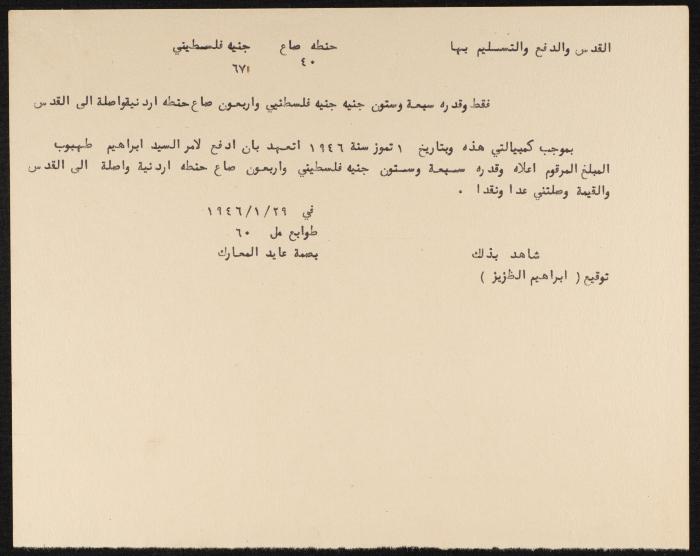 القدس والدفع والتسليم بها حنطه صاع جنيه فلسطيني
٤٠ ٦٧
فقط وقدره سبعة وستون جنيه جنيه فلسطيني واربعون صاع حنطه اردنيةواصلة الى القدس
بموجب كمبيالتي هذه وبتاريخ ١ تموز سنة ١٩٤٦ اتعهد بان ادفع لامر السيد ابراهيم طهبوب
المبلغ المرقوم اعلاه وقدره سبعة وستون جنيه فلسطيني واربعون صاع حنطه اردنية واصلة الى القدس
والقيمة وصلتني عدا ونقدا .
في ١٩٤٦/١/٢٩
طوابع مل ٦٠
شاهد بذلك بصمة عايد المعارك
توقيع ( ابراهيم الظزيز )